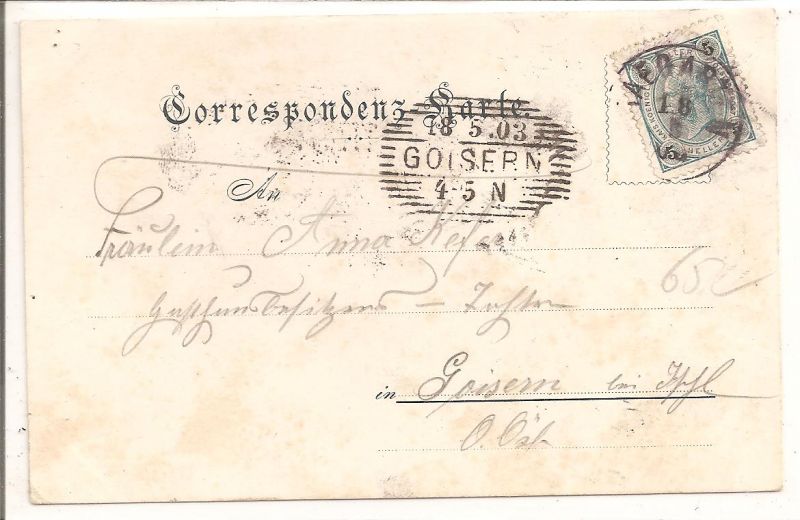 Correspondenz-Karte.
18 5.03
GOISERN
4-5 N
18
5
5
HELLER
An
Fräulein Anna Kefer
Gasthausbesitzers – Tochter
65
in Goisern bei Ischl
O. Öst.